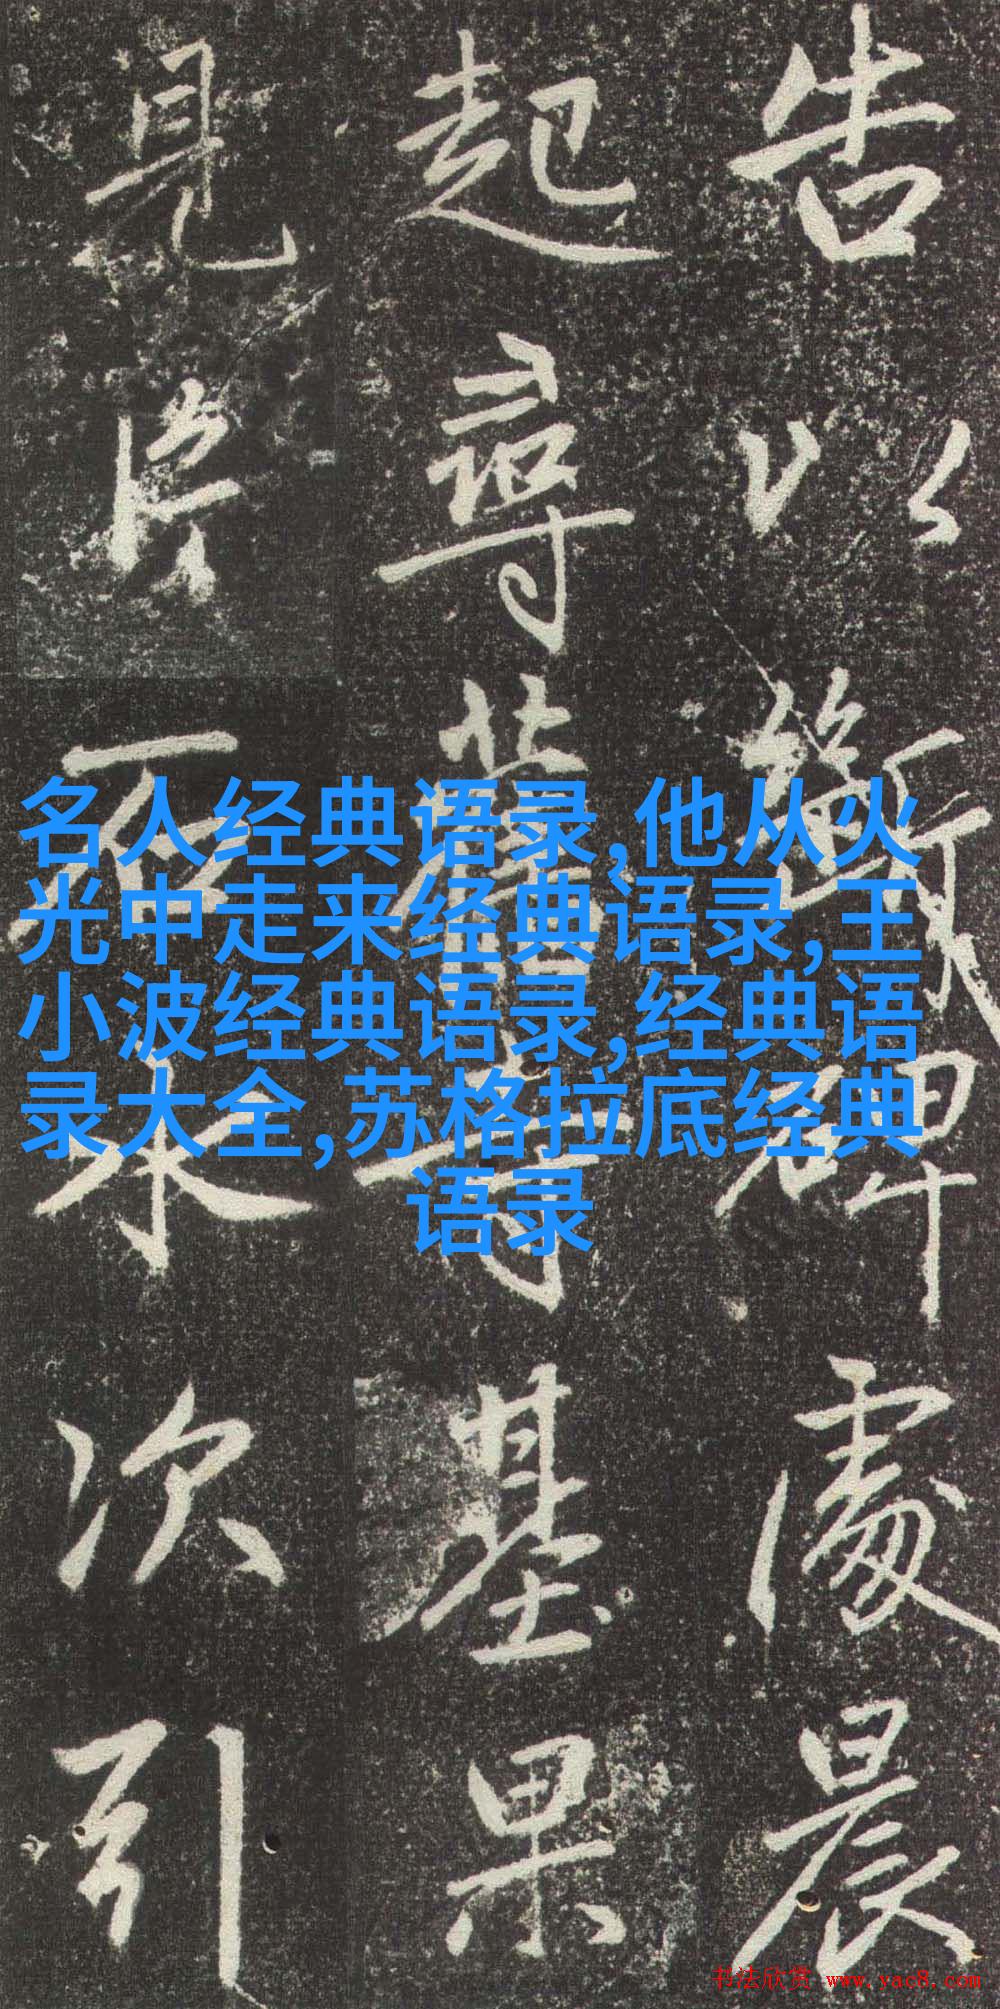 告以斷碑處晨
起尋舊寺基果
見片石水次引
名人经典语录,他从火
光中走来经典语录,王
小波经典语录,经典语
录大全,苏格拉底经典
语录
书法欣赏 www.yac8.com